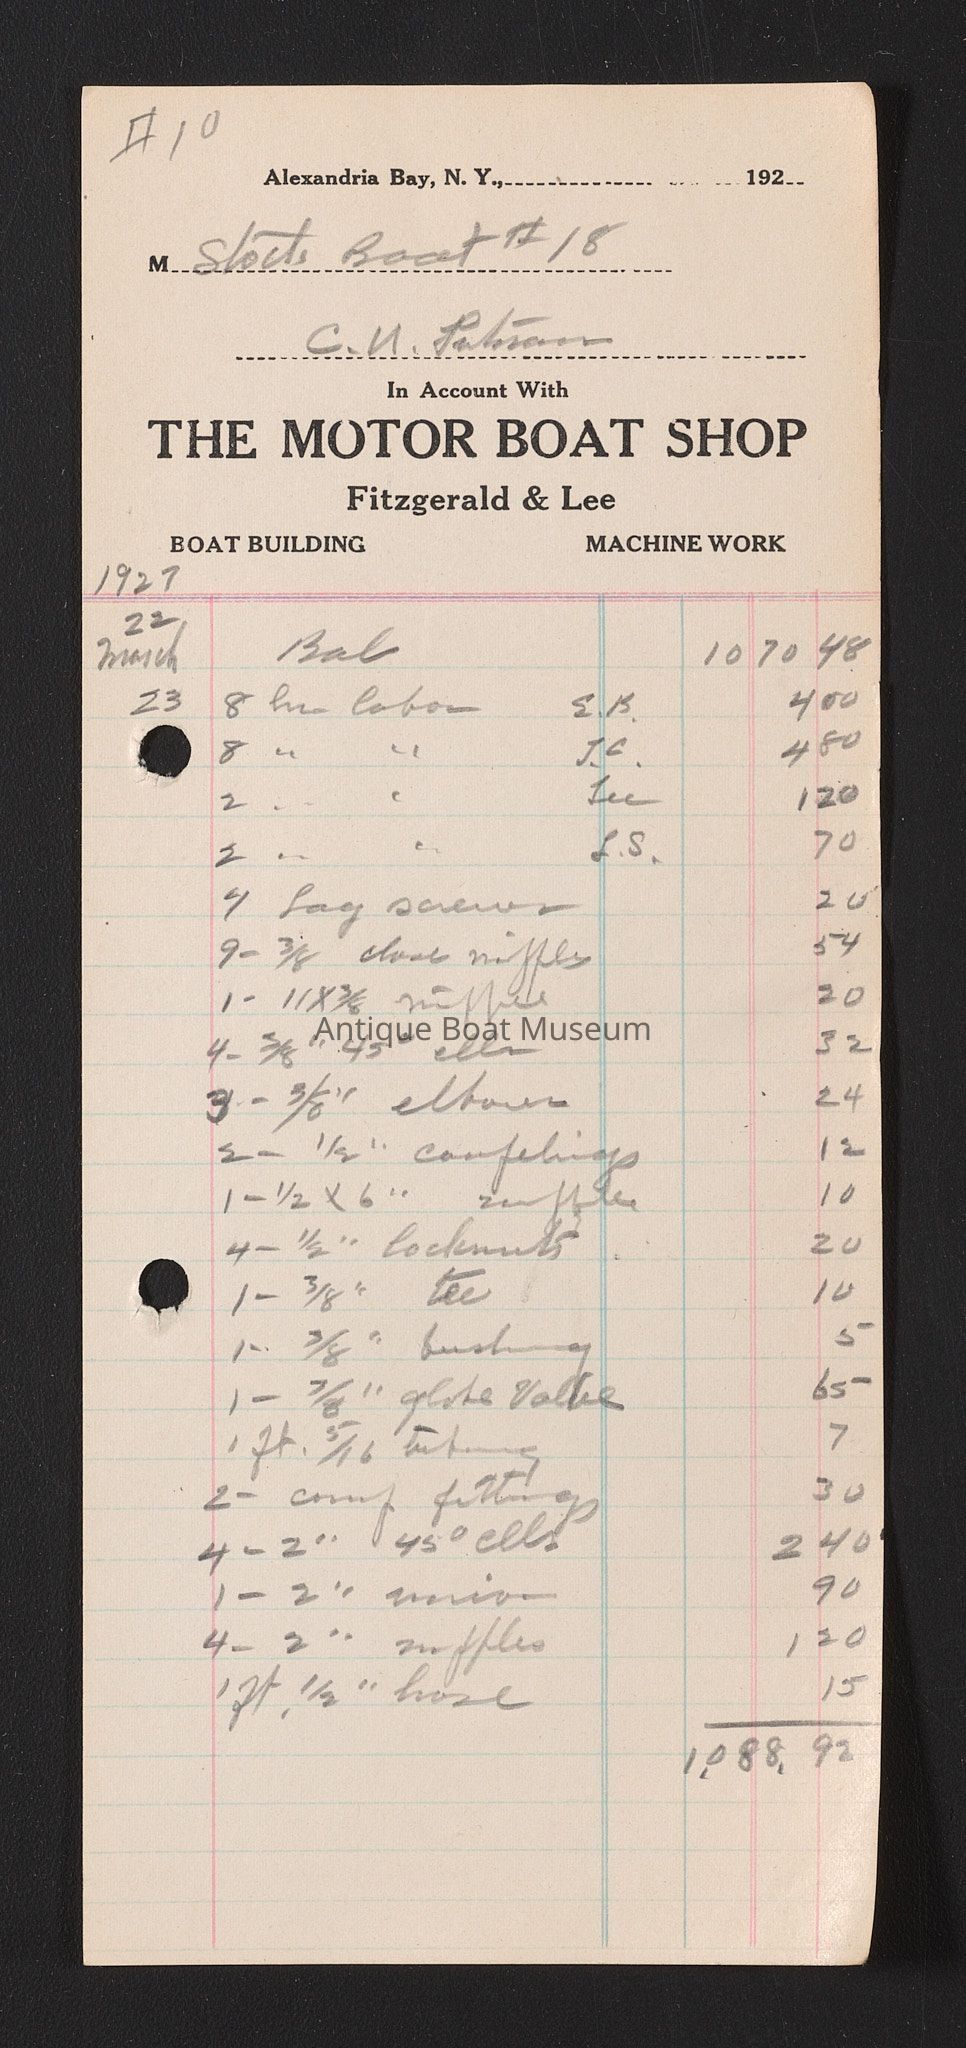 #10
Alexandria Bay, N. Y., 192
M Stock Boat #18
C. U. Putnam
In Account With
THE MOTOR BOAT SHOP
Fitzgerald & Lee
BOAT BUILDING MACHINE WORK
1927
22
March Bal 10 70 48
23 8 hr labor E.B. 4 00
8 " " J.C. 4 80
2 " " Lee 1 20
2 " " L.S. 70
4 Lag screws 20
9- 3/8 close nipples 54
1- 11 X 3/8 nipple 20
Antique Boat Museum
4- 3/8" 45° ells 32
3- 3/8" elbows 24
2- 1/2" couplings 12
1- 1/2 X 6" nipple 10
4- 1/2" locknuts 20
1- 3/8" tee 10
1- 3/8" bushing 5
1- 3/8" globe Valve 65
1 ft. 5/16 tubing 7
2- comp fittings 30
4- 2" 45° ells 2 40
1- 2" union 90
4- 2" nipples 1 20
1 ft, 1/2" hose 15
1,088.92